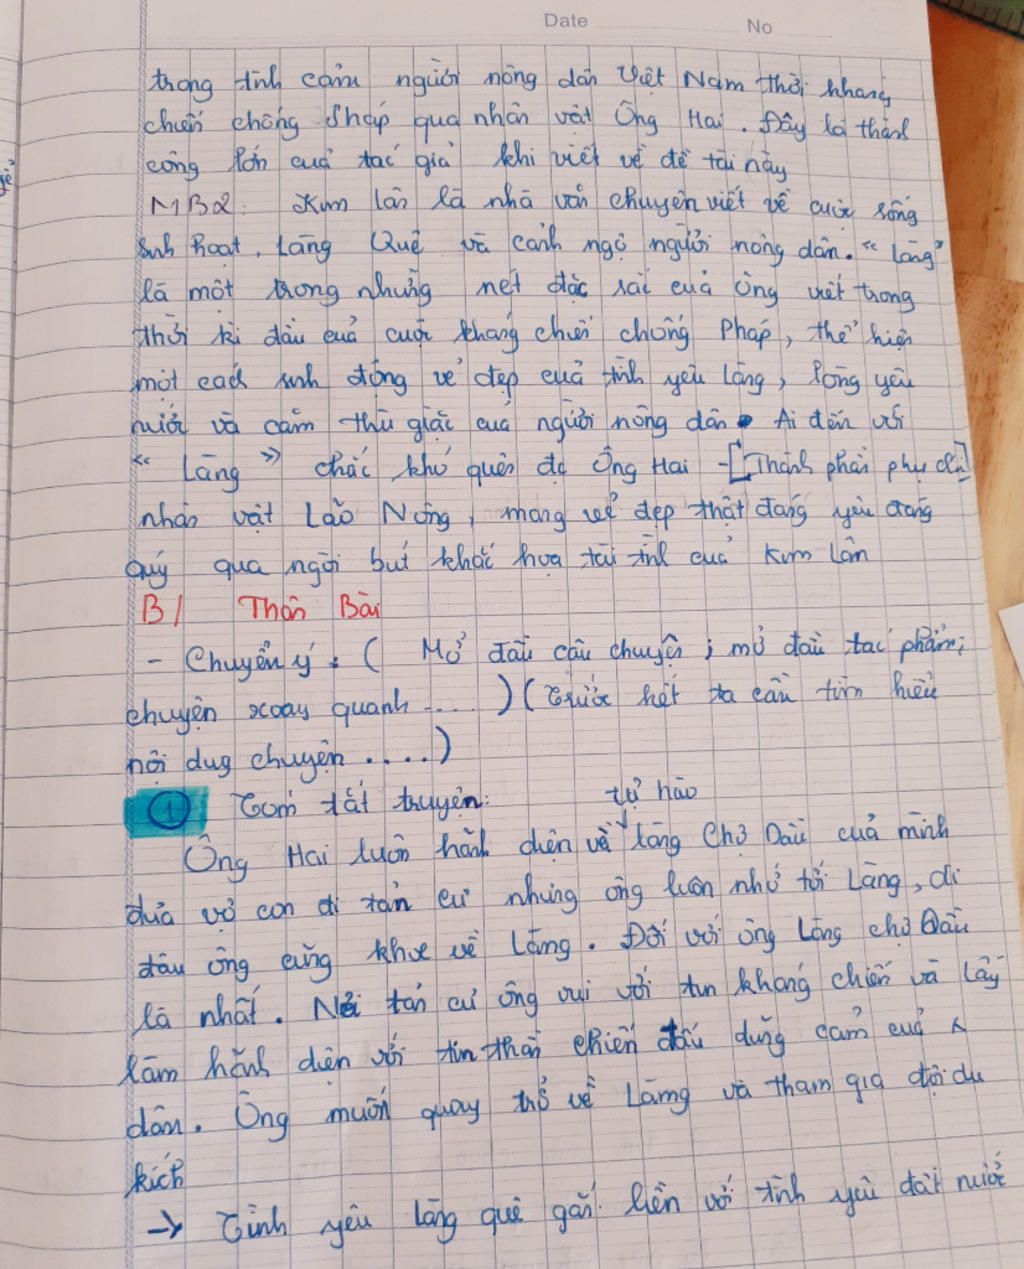 Date No
trong tình cảm người nông dân Việt Nam thời kháng
chiến chống Pháp qua nhân vật Ông Hai. Đây là thành
công lớn của tác giả khi viết về đề tài này
MB2: Kim Lân là nhà văn chuyên viết về cuộc sống
sinh hoạt, Làng Quê và cảnh ngộ người nông dân. "Làng"
là một trong những nét đặc sắc của ông viết trong
thời kì đầu của cuộc kháng chiến chống Pháp, thể hiện
một cách sinh động vẻ đẹp của tình yêu Làng, lòng yêu
nước và căm thù giặc của người nông dân. Ai đến với
"Làng" chắc khó quên đc Ông Hai -[Thành phần phụ chú]
nhân vật Lão Nông, mang vẻ đẹp thật đáng yêu đáng
quý qua ngòi bút khắc họa tài tình của Kim Lân
B/ Thân Bài
- Chuyển ý: ( Mở đầu câu chuyện; mở đầu tác phẩm;
chuyện xoay quanh .... ) ( Trước hết ta cần tìm hiểu
nội dug chuyện ....)
① Tóm tắt truyện: tự hào
Ông Hai luôn hãnh diện về √ làng Chợ Dầu của mình
đưa vợ con đi tản cư nhưng ông luôn nhớ tới Làng, đi
đâu ông cũng khoe về Làng. Đối với ông Làng chợ Dầu
là nhất. Nơi tản cư ông vui với tin kháng chiến và lấy
làm hãnh diện với tinh thần chiến đấu dũng cảm của
dân. Ông muốn quay trở về Làng và tham gia đội du
kích
→ Tình yêu làng quê gắn liền với tình yêu đất nước